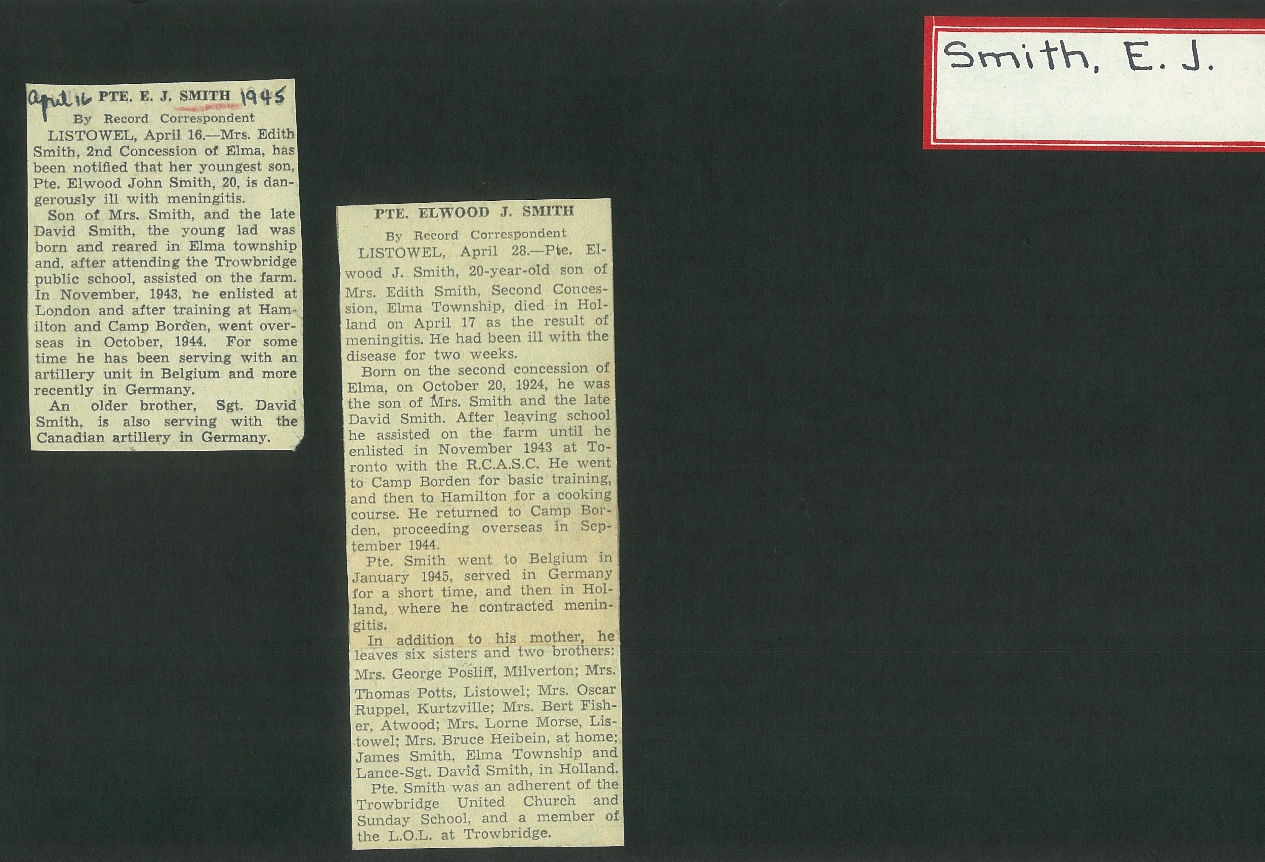 Smith, E. J.
April 16 PTE. E. J. SMITH 1945
By Record Correspondent
LISTOWEL, April 16.—Mrs. Edith
Smith, 2nd Concession of Elma, has
been notified that her youngest son,
Pte. Elwood John Smith, 20, is dan-
gerously ill with meningitis.
Son of Mrs. Smith, and the late
David Smith, the young lad was
born and reared in Elma township
and, after attending the Trowbridge
public school, assisted on the farm.
In November, 1943, he enlisted at
London and after training at Ham-
ilton and Camp Borden, went over-
seas in October, 1944. For some
time he has been serving with an
artillery unit in Belgium and more
recently in Germany.
An older brother, Sgt. David
Smith, is also serving with the
Canadian artillery in Germany.
PTE. ELWOOD J. SMITH
By Record Correspondent
LISTOWEL, April 28.—Pte. El-
wood J. Smith, 20-year-old son of
Mrs. Edith Smith, Second Conces-
sion, Elma Township, died in Hol-
land on April 17 as the result of
meningitis. He had been ill with the
disease for two weeks.
Born on the second concession of
Elma, on October 20, 1924, he was
the son of Mrs. Smith and the late
David Smith. After leaving school
he assisted on the farm until he
enlisted in November 1943 at To-
ronto with the R.C.A.S.C. He went
to Camp Borden for basic training,
and then to Hamilton for a cooking
course. He returned to Camp Bor-
den, proceeding overseas in Sep-
tember 1944.
Pte. Smith went to Belgium in
January 1945, served in Germany
for a short time, and then in Hol-
land, where he contracted menin-
gitis.
In addition to his mother, he
leaves six sisters and two brothers:
Mrs. George Posliff, Milverton; Mrs.
Thomas Potts, Listowel; Mrs. Oscar
Ruppel, Kurtzville; Mrs. Bert Fish-
er, Atwood; Mrs. Lorne Morse, Lis-
towel; Mrs. Bruce Heibein, at home;
James Smith, Elma Township and
Lance-Sgt. David Smith, in Holland.
Pte. Smith was an adherent of the
Trowbridge United Church and
Sunday School, and a member of
the L.O.L. at Trowbridge.